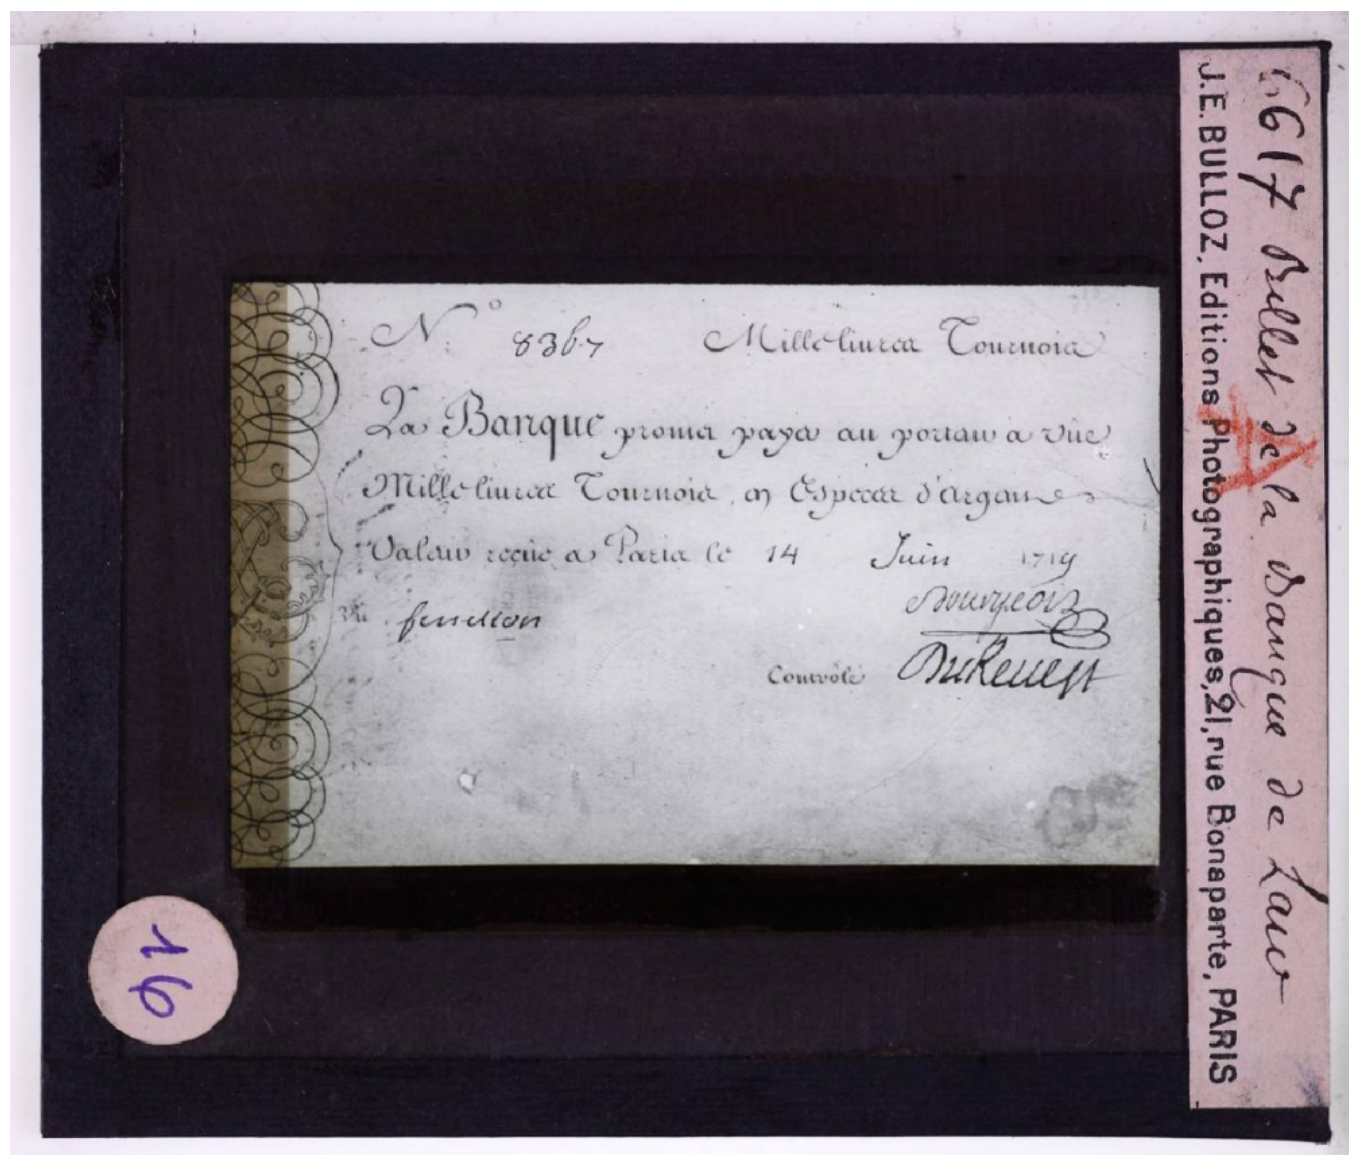 N.° 8367 Mille livres Tournois
La Banque promet payer au porteur a vüe
Mille livres Tournois, en Especes d'argent
Valeur reçüe, a Paris le 14 Juin 1719
Vu fenellon
Bourgeois
Controlé DuRevest
6617 Billet de la Banque de Law
J.E. BULLOZ, Editions Photographiques, 21, rue Bonaparte, PARIS
A
16